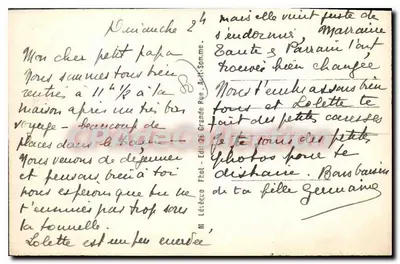 Dimanche 24
Mon cher petit papa
Nous sommes tous bien
rentrés à 11h ½ à la
maison après un très bon
voyage - beaucoup de
places dans le train -
Nous venons de déjeuner
et pensons bien à toi
nous espérons que tu ne
t'ennuies pas trop sous
la tonnelle.
Lolette est un peu enervée
mais elle vient juste de
s'endormir, Marraine
Tante & Parrain l'ont
trouvée bien changée
Nous t'embrassons bien
tous et Lolette te
fait des petites caresses
je te joins des petites
photos pour te
distraire. Bons baisers
de ta fille Germaine
Phot - Edit. Grande Rue, Ault-Somme.